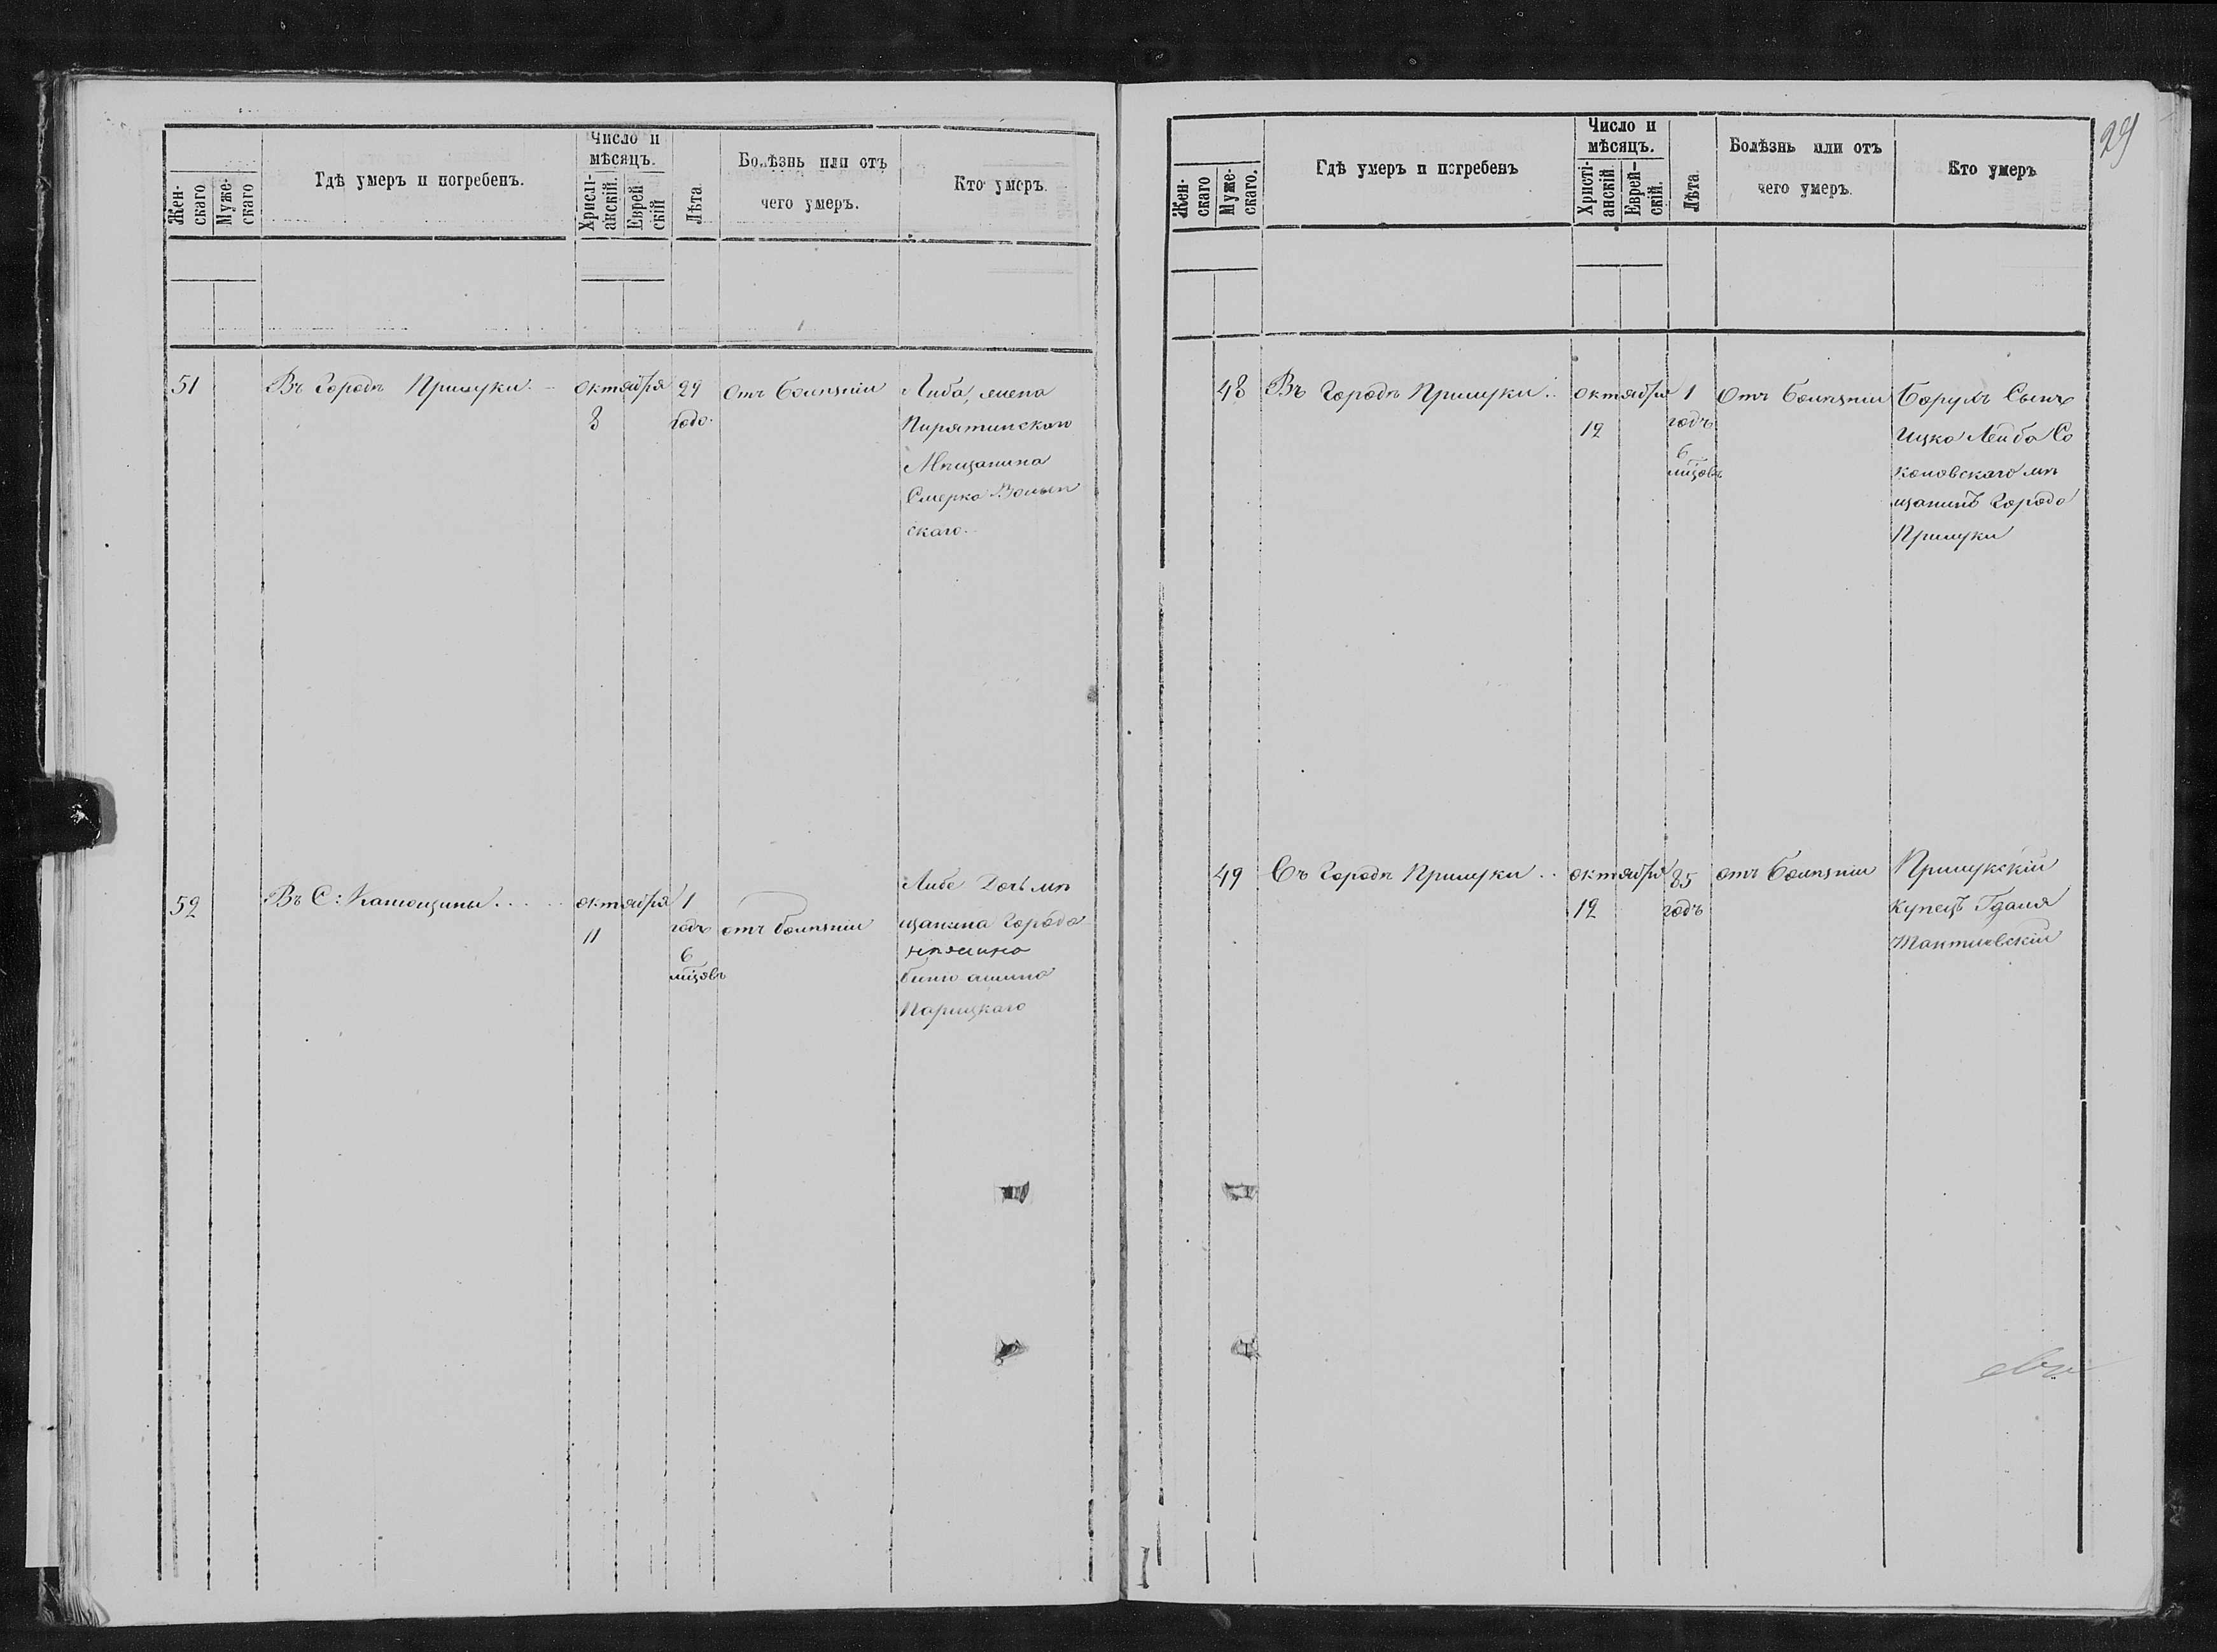 Жен-
скаго
Муже-
скаго
Гдѣ умеръ и погребенъ.
Число и
мѣсяцъ.
Христі-
анскій.
Еврей-
скій
Лѣта.
Болѣзнь или отъ
чего умеръ.
Кто умеръ.
51
Въ Городѣ Прилуки
октября
8
29
годо.
Отъ болѣзни
Либа, жена
Пирятинскаго
Мѣщанина
Смерка Волын
скаго.
52
Въ С:
октября
11
1
годъ
6
мѣцовъ
отъ болѣзни
Либе Дочь мѣ
щанина Города
Нѣжина
Парицкаго
29
Жен-
скаго
Муже-
скаго.
Гдѣ умеръ и погребенъ
Число и
мѣсяцъ.
Христі-
анскій.
Еврей-
скій.
Лѣта.
Болѣзнь или отъ
чего умеръ.
Кто умеръ
48
Въ Городѣ Прилуки
октября
12
1
годъ
6
мѣцовъ
Отъ болѣзни
Борухъ Сынъ
Ицко Лейба Со
коловскаго мѣ
щанинъ Города
Прилуки
49
Въ Городѣ Прилуки
октября
12
85
годъ
отъ болѣзни
Прилукскій
купецъ Гдаля